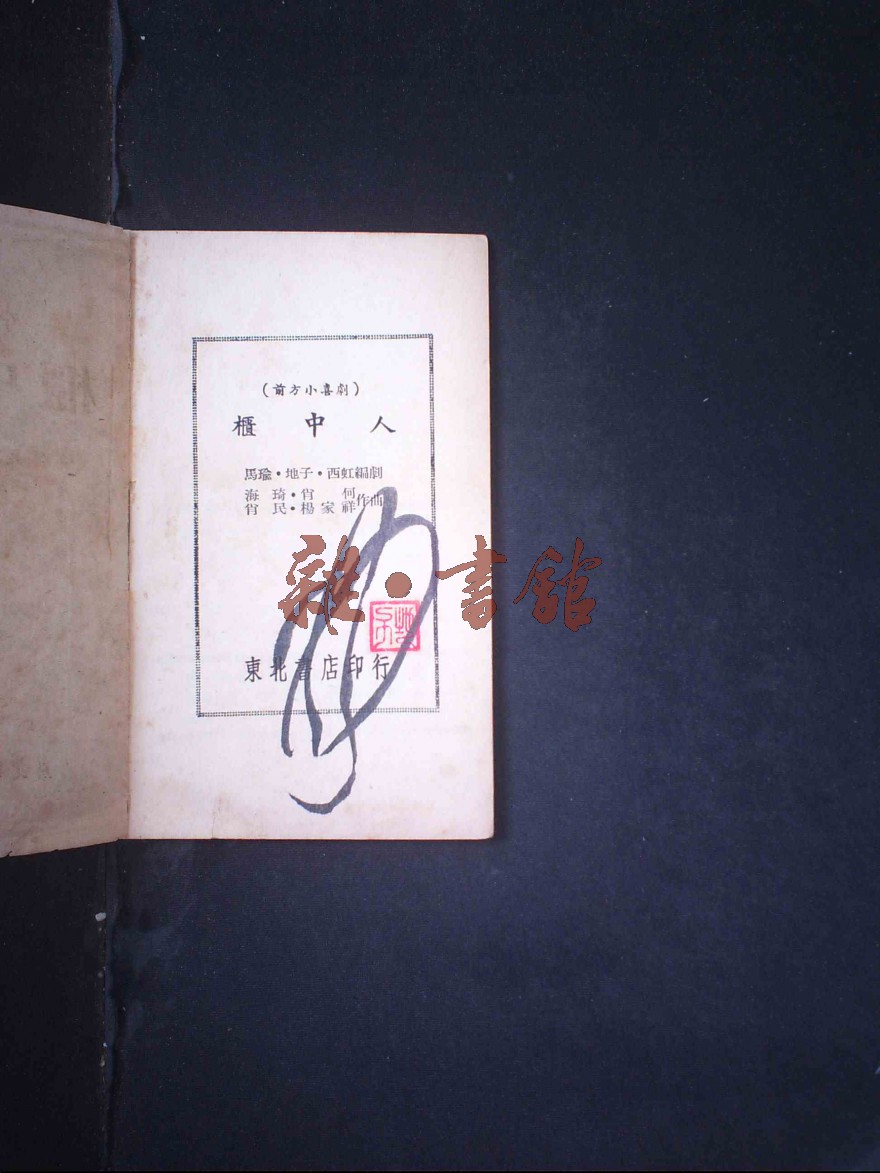 （前方小喜劇）
櫃中人
馬瑜・地子・西虹編劇
海琦・肖何
肖民・楊家祥作曲
雜・書館
東北書店印行